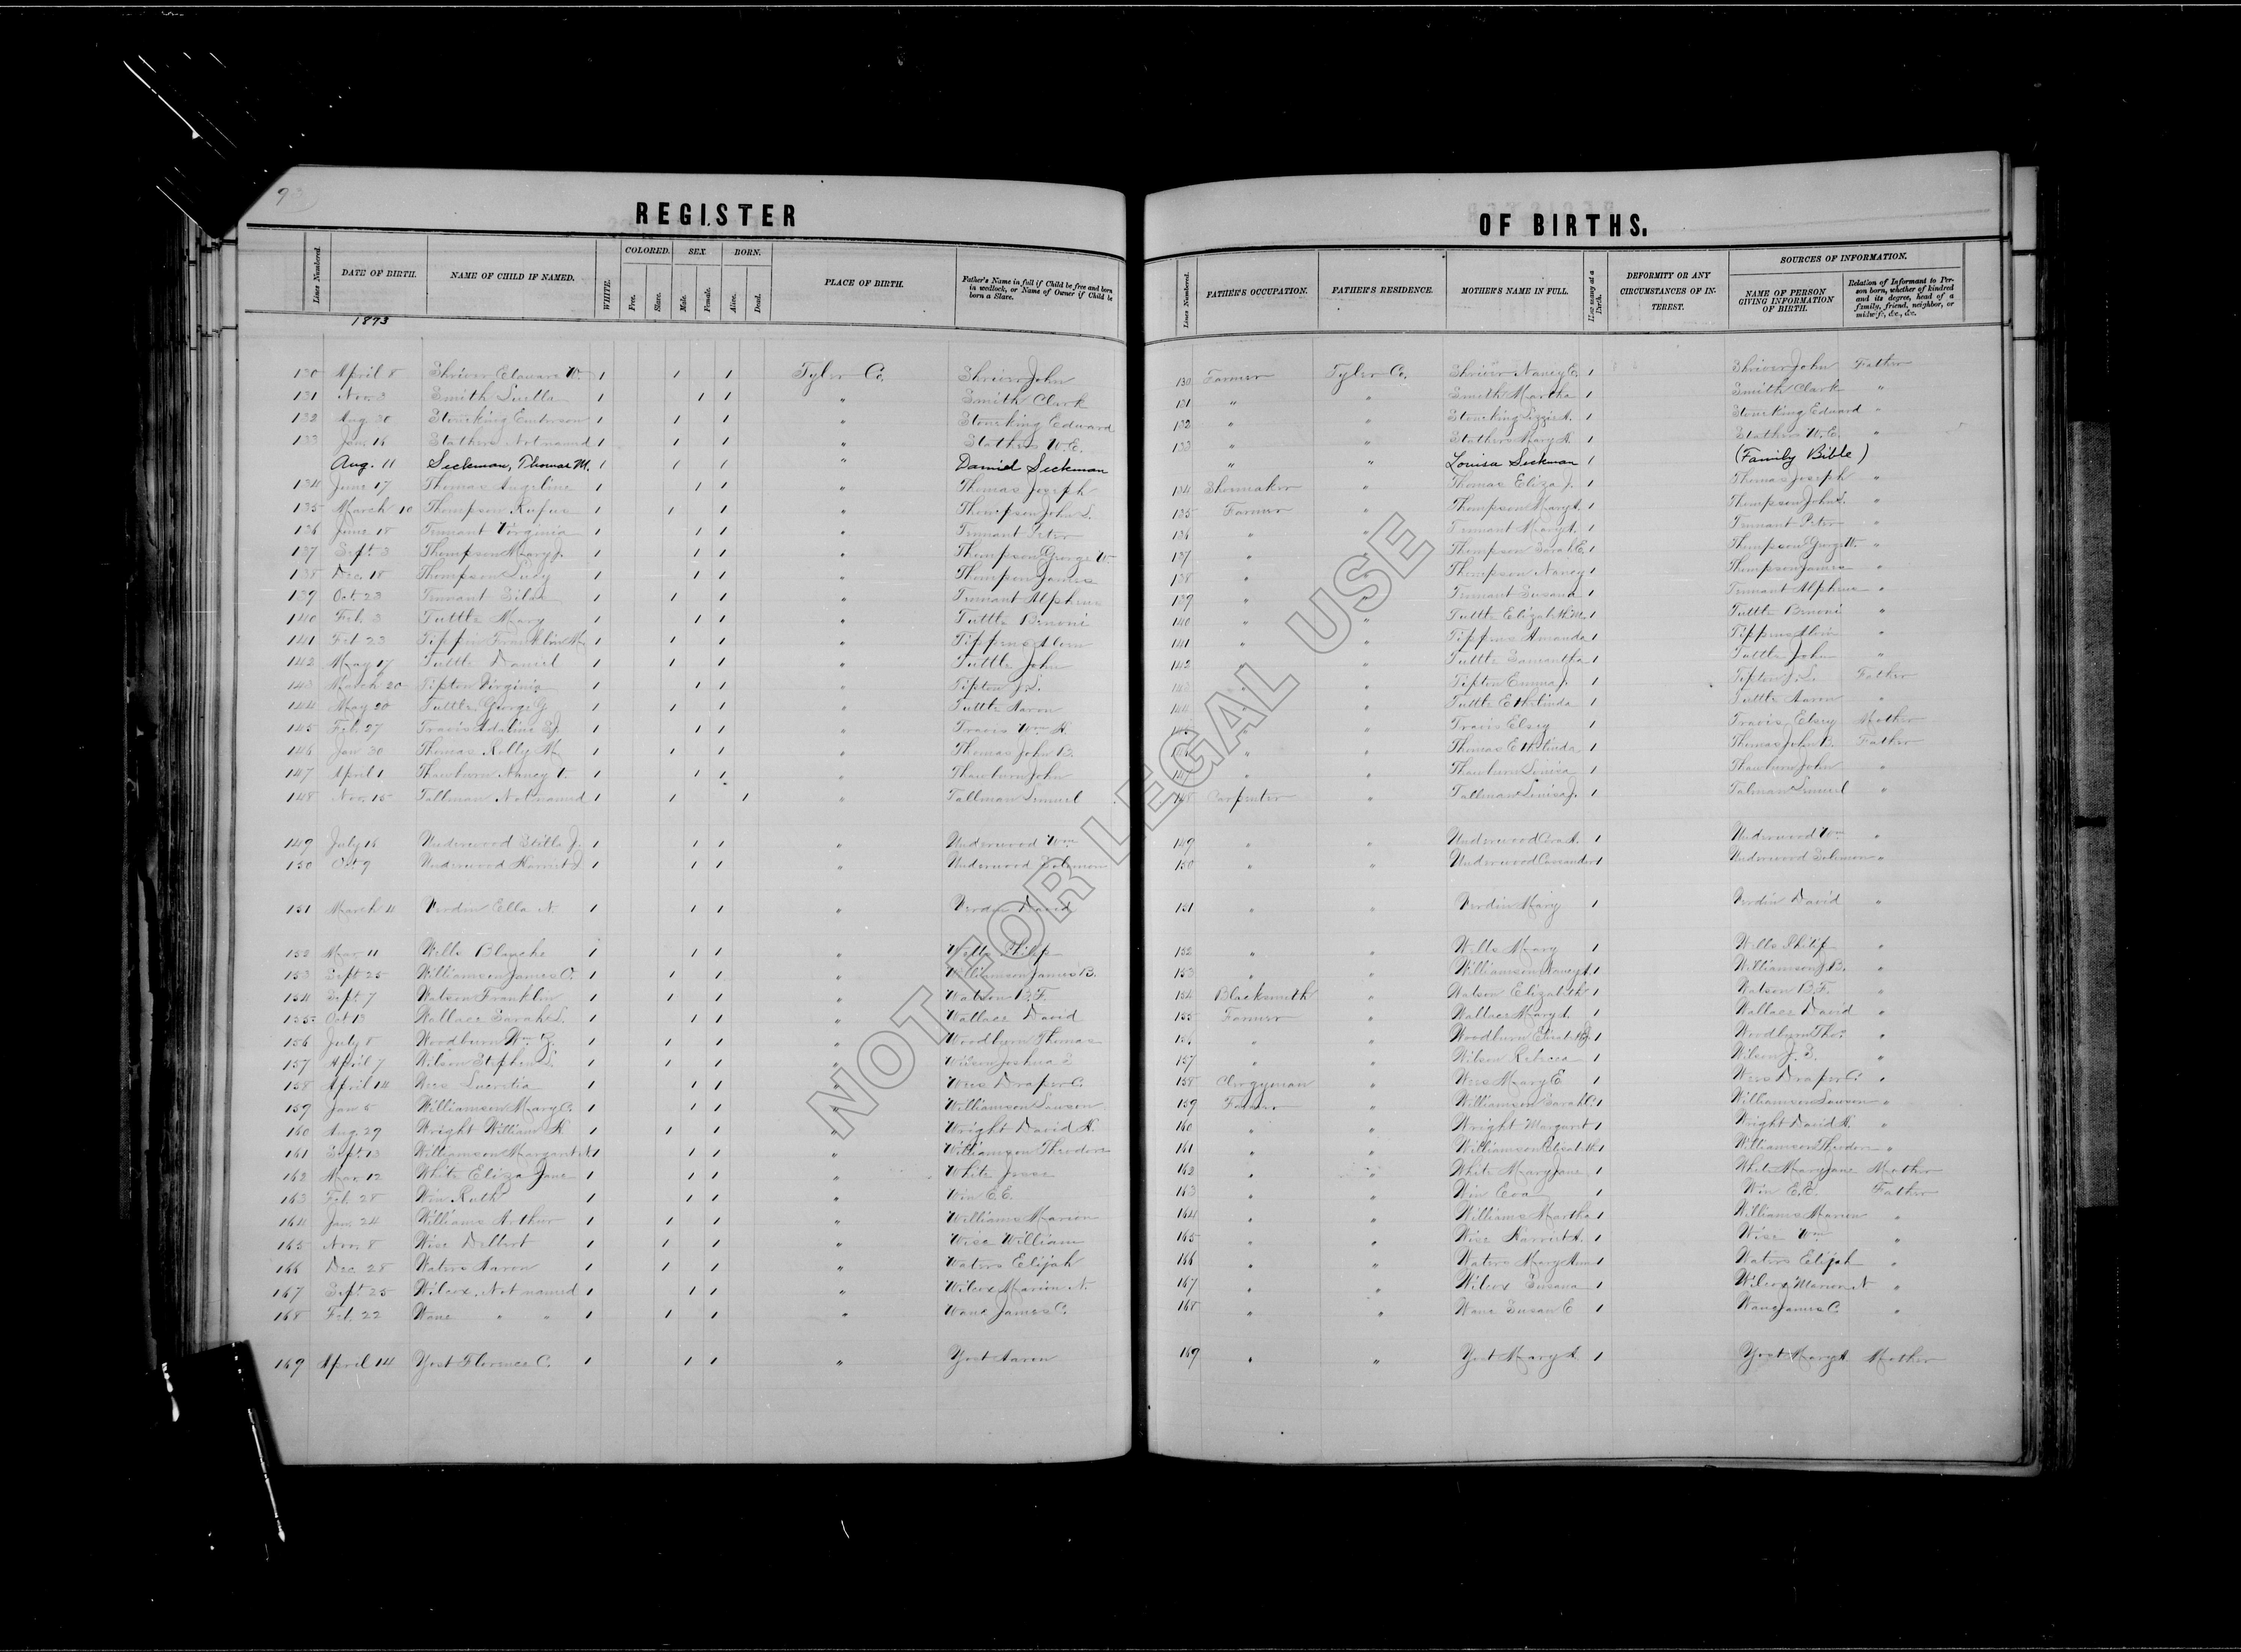 93
REGISTER
OF BIRTHS.
Lines Numbered. DATE OF BIRTH. NAME OF CHILD IF NAMED. WHITE. COLORED. Free. Slave. SEX. Male. Female. BORN. Alive. Dead. PLACE OF BIRTH. Father's Name in full if Child be free and born in wedlock, or Name of Owner if Child be born a Slave.
Lines Numbered. FATHER'S OCCUPATION. FATHER'S RESIDENCE. MOTHER'S NAME IN FULL. How many at a Birth. DEFORMITY OR ANY CIRCUMSTANCES OF INTEREST. SOURCES OF INFORMATION. NAME OF PERSON GIVING INFORMATION OF BIRTH. Relation of Informant to Person born, whether of kindred and its degree, head of a family, friend, neighbor, or midwife, &c., &c.
1873
130 April 8 Shriver W. 1 1 1 Tyler Co. Shriver John 130 Farmer Tyler Co. Shriver Nancy E. 1 Shriver John Father
131 Nov. 3 Smith Luella 1 1 1 " Smith Clark 131 " " Smith Martha 1 Smith Clark "
132 Aug 30 Stoneking 1 1 1 " Stoneking Edward 132 " " Stoneking Lizzie A. 1 Stoneking Edward "
133 Jan 16 Stathers Not named 1 1 1 " Stathers W. E. 133 " " Stathers Mary A. 1 Stathers W. E. "
Aug. 11 Seckman, Thomas M. 1 1 1 " Daniel Seckman " " Louisa Seckman 1 (Family Bible)
134 June 17 Thomas Angeline 1 1 1 " Thomas Joseph 134 Shoemaker " Thomas Eliza J. 1 Thomas Joseph "
135 March 10 Thompson Rufus 1 1 1 " Thompson John S. 135 Farmer " Thompson Mary A. 1 Thompson John S. "
136 June 18 Tennant Virginia 1 1 1 " Tennant Peter 136 " " Tennant Mary A. 1 Tennant Peter "
137 Sept 3 Thompson Mary J. 1 1 1 " Thompson George W. 137 " " Thompson Sarah E. 1 Thompson George W. "
138 Dec. 18 Thompson Lucy 1 1 1 " Thompson James 138 " " Thompson Nancy 1 Thompson James "
139 Oct 23 Tennant Silas 1 1 1 " Tennant Alpheus 139 " " Tennant Susana 1 Tennant Alpheus "
140 Feb 3 Tuttle Mary 1 1 1 " Tuttle Benoni 140 " " Tuttle Elizabeth M. 1 Tuttle Benoni "
141 Feb 23 Tippins Franklin M. 1 1 1 " Tippens 141 " " Tippins Amanda 1 Tippins "
142 May 17 Tuttle Daniel 1 1 1 " Tuttle John 142 " " Tuttle Samantha 1 Tuttle John "
143 March 20 Tipton Virginia 1 1 1 " Tipton J. S. 143 " " Tipton Emma J. 1 Tipton J. S. Father
144 May 20 Tuttle George G 1 1 1 " Tuttle Aaron 144 " " Tuttle Ethelinda 1 Tuttle Aaron "
145 Feb 27 Travis Adaline 1 1 1 " Travis Wm H. 145 " " Travis Elsey 1 Travis, Elsey Mother
146 Jan 30 Thomas Rolly M 1 1 1 " Thomas John B. 146 " " Thomas Ethelinda 1 Thomas John B. Father
147 April 1 Thawburn Nancy V. 1 1 1 " Thawburn John 147 " " Thawburn Louisa 1 Thawburn John "
148 Nov. 15 Tallman Not named 1 1 1 " Tallman Lemuel 148 Carpenter " Tallman Louisa J. 1 Talman Lemuel "
149 July 16 Underwood Stella J. 1 1 1 " Underwood Wm 149 " " Underwood Cora A. 1 Underwood Wm "
150 Oct 9 Underwood Harriet 1 1 1 " Underwood Solomon 150 " " Underwood Cassander 1 Underwood Solomon "
151 March 11 Verdin Ella N. 1 1 1 " Verdin David 151 " " Verdin Mary 1 Verdin David "
152 Mar. 11 Wells Blanche 1 1 1 " Wells Philip 152 " " Wells Mary 1 Wells Philip "
153 Sept 25 Williamson James O. 1 1 1 " Williamson James B. 153 " " Williamson Nancy A. 1 Williamson J. B. "
154 Sept. 7 Watson Franklin 1 1 1 " Watson B. F. 154 Blacksmith " Watson Elizabeth 1 Watson B. F. "
155 Oct 13 Wallace Sarah L. 1 1 1 " Wallace David 155 Farmer " Wallace Mary A. 1 Wallace David "
156 July 8 Woodburn Wm 1 1 1 " Woodburn Thomas 156 " " Woodburn 1 Woodburn Thos "
157 April 7 Wilson Stephen S. 1 1 1 " Wilson Joshua S 157 " " Wilson Rebecca 1 Wilson J. S. "
158 April 14 Wees Lucretia 1 1 1 " Wees Draper C. 158 Clergyman " Wees Mary E 1 Wees Draper C. "
159 Jan 5 Williamson Mary C. 1 1 1 " Williamson Lawson 159 Farmer " Williamson Sarah C. 1 Williamson Lawson "
160 Aug. 29 Wright William H 1 1 1 " Wright David H. 160 " " Wright Margaret 1 Wright David H. "
161 Sept. 13 Williamson Margaret A. 1 1 1 " Williamson Theodore 161 " " Williamson Elizabeth 1 Williamson Theodore "
162 Mar. 12 White Eliza Jane 1 1 1 " White Jesse 162 " " White Mary Jane 1 White Mary Jane Mother
163 Feb. 28 Win Ruth 1 1 1 " Win E. E. 163 " " Win Eva 1 Win E. E. Father
164 Jan 24 Williams Arthur 1 1 1 " Williams Marion 164 " " Williams Martha 1 Williams Marion "
165 Nov. 8 Wise Delbert 1 1 1 " Wise William 165 " " Wise Harriet A. 1 Wise Wm "
166 Dec. 28 Waters Aaron 1 1 1 " Waters Elijah 166 " " Waters Mary Ann 1 Waters Elijah "
167 Sept 25 Wilcox, Not named 1 1 1 " Wilcox Marion N. 167 " " Wilcox Susana 1 Wilcox Marion N "
168 Feb. 22 Wane " " 1 1 1 " Wane James C. 168 " " Wane Susan E 1 Wane James C. "
169 April 14 Yost Florence C. 1 1 1 " Yost Aaron 169 " " Yost Mary A. 1 Yost Mary A. Mother
NOT FOR LEGAL USE